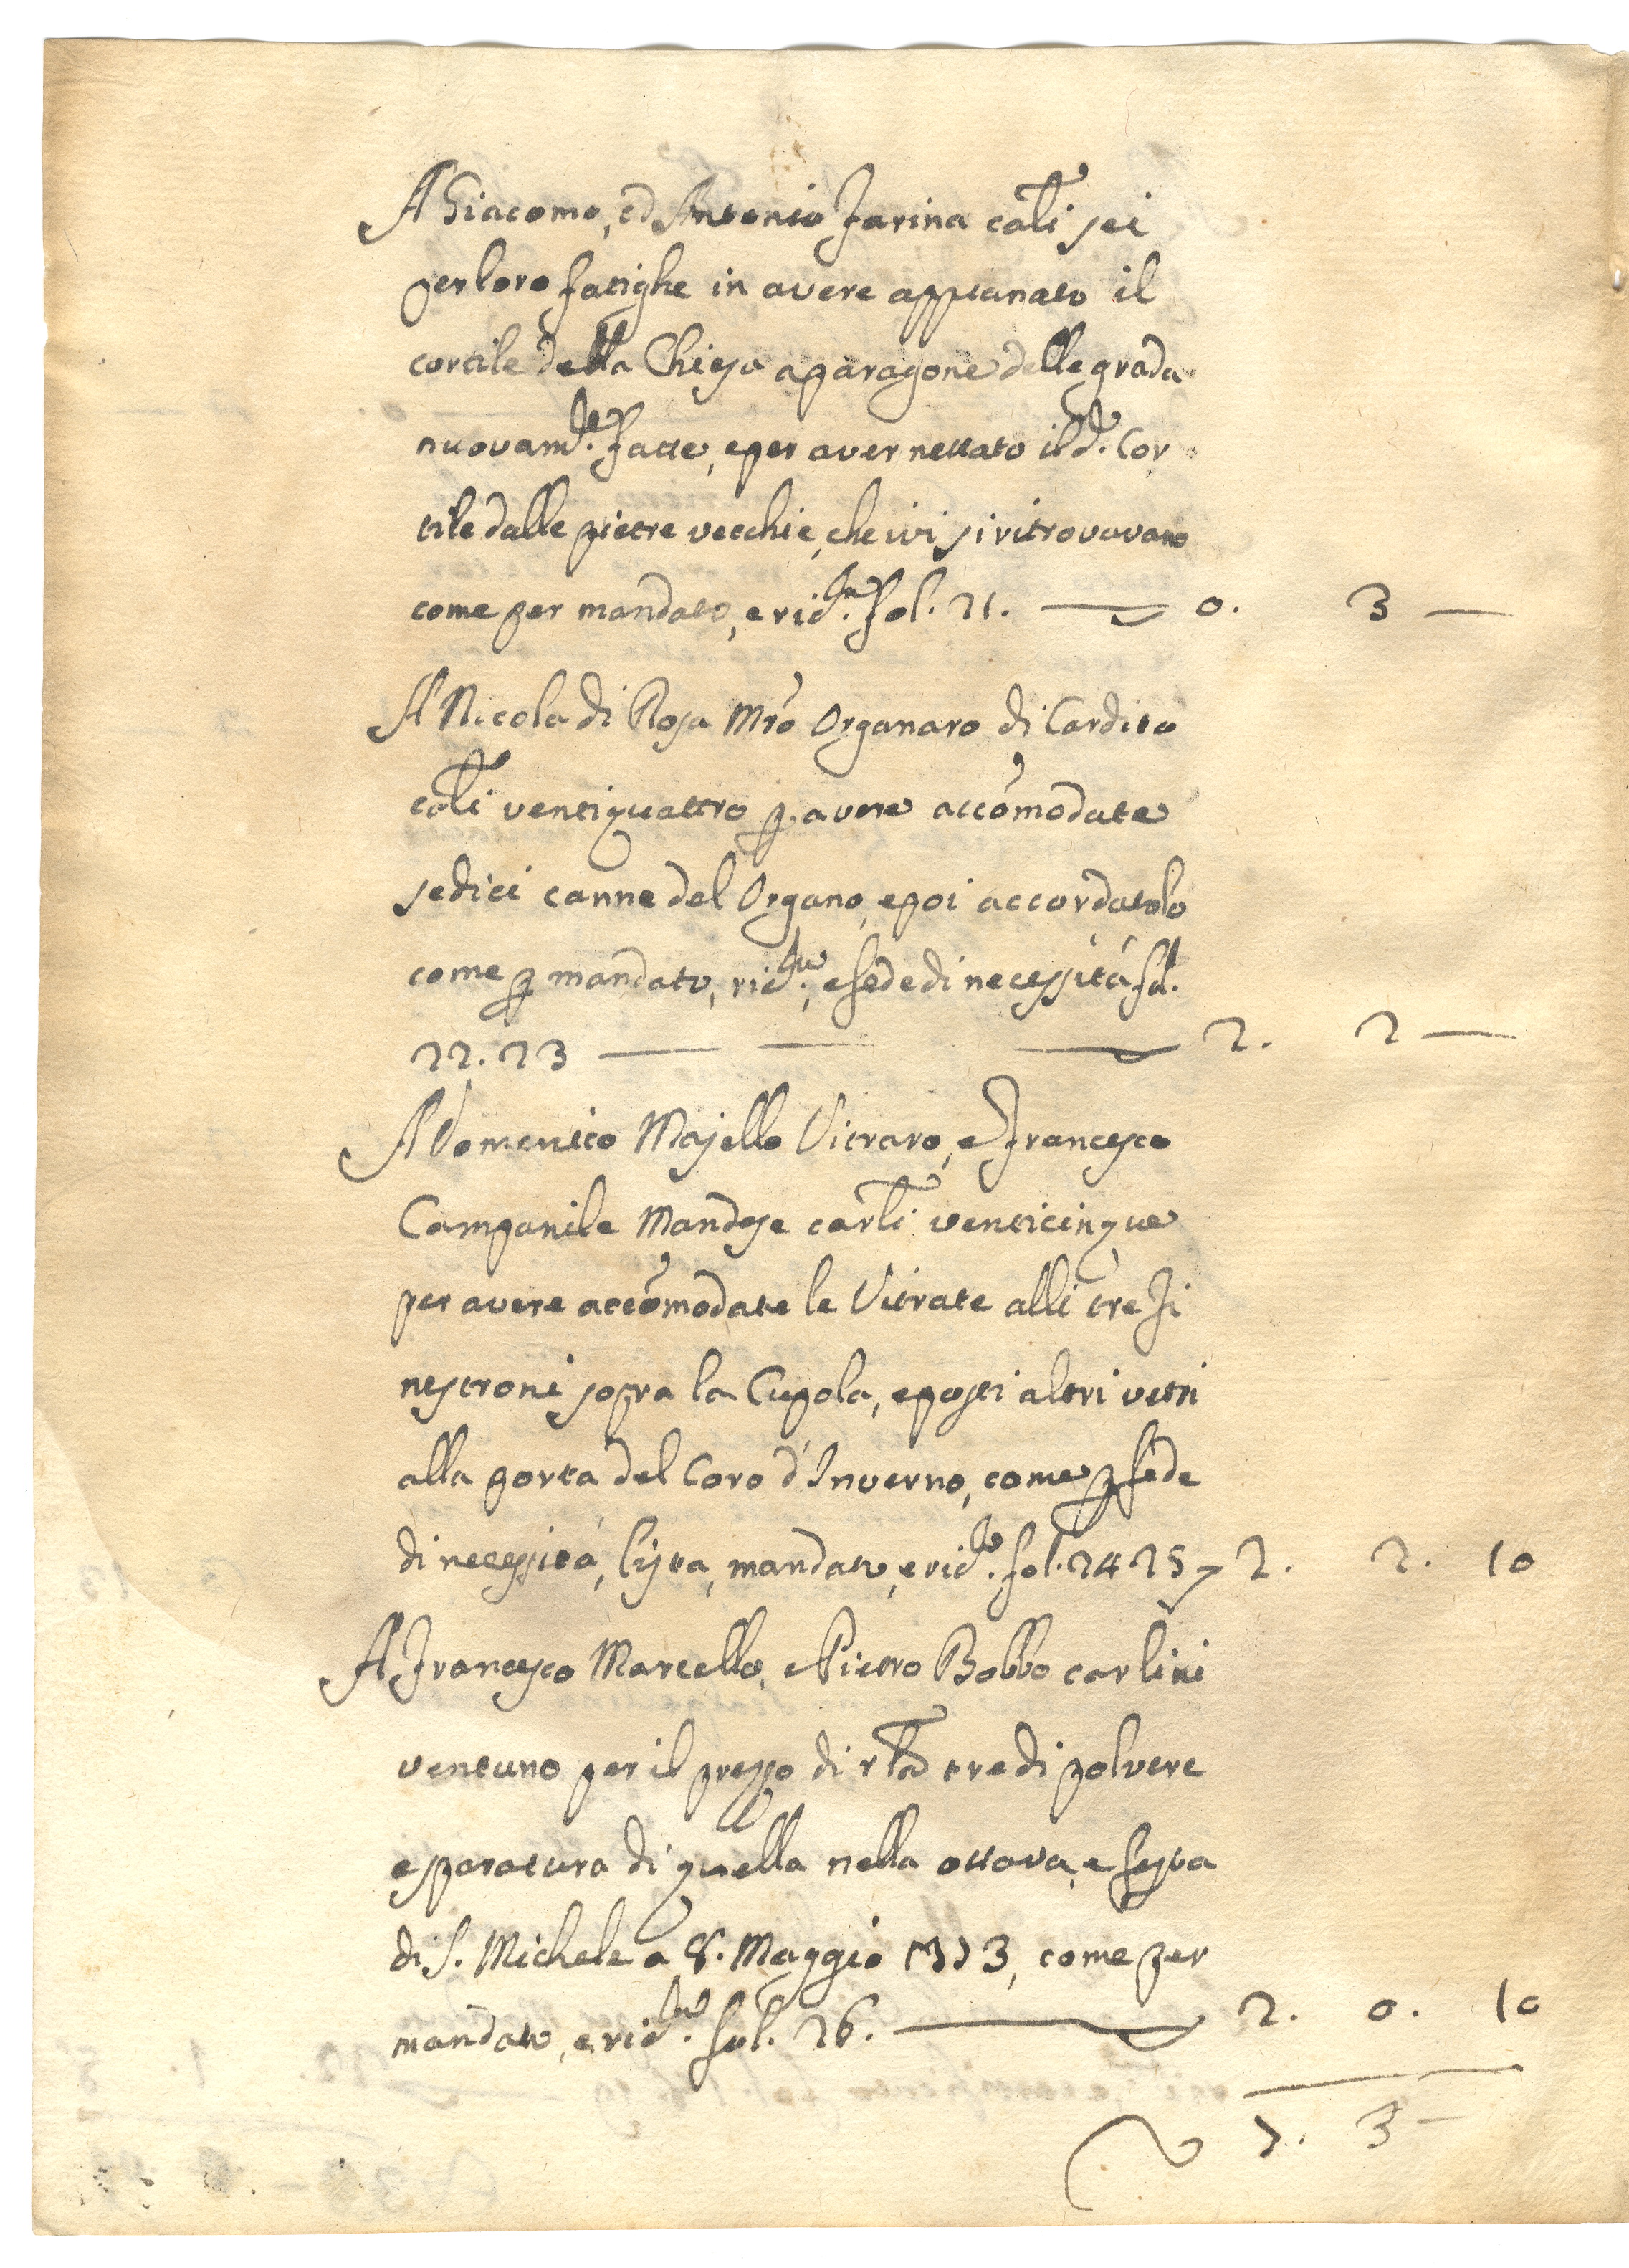 A Giacomo, ed Antonio Farina cali sei
per loro fatighe in avere appianato il
cortile della Chiesa a paragone delle grada
nuovam.te fatte, e per aver nettato il d.o Cor
tile dalle pietre vecchie, che ivi si ritrovavano
come per mandato, e ric.ta fol. 21. 0. 3 —
A Nicola di Rosa Mro Organaro di Cardito
cali ventiquattro p. avere accomodate
sedici canne del Organo, e poi accordatolo
come p mandato, ric.ta, e fede di necessità fol.
22. 23 — — — 2. 2 —
A Domenico Majello Vitraro, e Francesco
Campanile Mandese carli venticinque
per avere accomodate le Vitrate alli tre fi
nestroni sopra la Cupola, e posti altri vetri
alla porta del Coro d'Inverno, come p fede
di necessità, lista, mandato, e ric.ta fol. 24 25 2. 2. 10
A Francesco Marcello, e Pietro Bobbo carlini
ventuno per il prezzo di rla tre di polvere
e sparatura di quella nella ottava, e festa
di S. Michele a 8. Maggio 1773, come per
mandato, e ric.ta fol. 26. — 2. 0. 10
7. 3 —